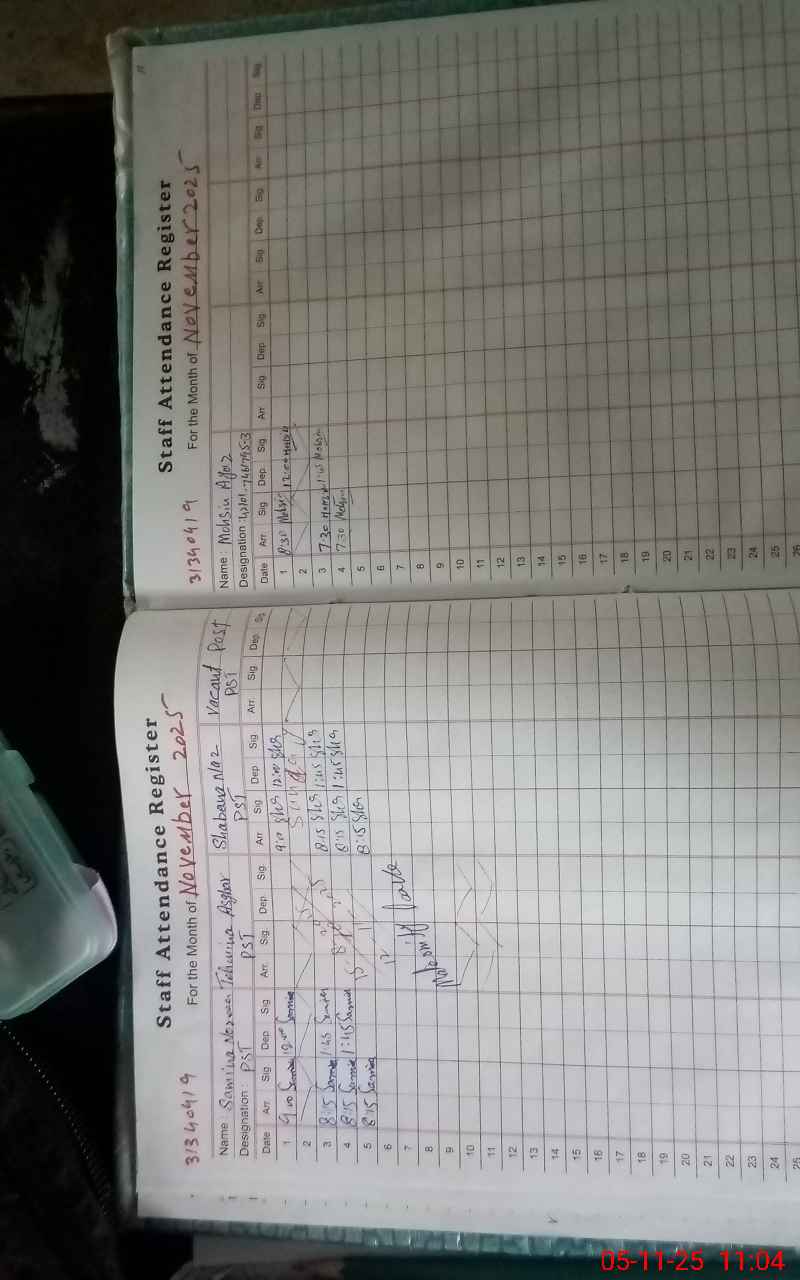 Staff Attendance Register
31340419 For the Month of November 2025
Name : Samina Tehmina Asghar Shabana Naz Vacant Post
Designation : PST PST PST PST
Date Arr. Sig Dep Sig Arr. Sig. Dep. Sig. Arr Sig Dep Sig Arr. Sig Dep.
1 9:00 12:00 9:00 Sha 12:00 Sha
2 Sunday
3 8:15 1:45 8:15 Sha 1:45 Sha
4 8:15 1:45 Samina 8:15 Sha 1:45 Sha
5 8:15 Samina 8:15 Sha
6
7
8
9
10
11
12
13
14
15
16
17
18
19
20
21
22
23
24
25
Staff Attendance Register
31340419 For the Month of November 2025
Name : Mohsin
Designation :
Date Arr. Sig Dep Sig Arr Sig Dep Sig Arr Sig Dep. Sig. Arr Sig Dep Sig.
1 8:30 Mohsin 12:00 Mohsin
2
3 7:30 Mohsin 1:45 Mohsin
4 7:30 Mohsin
5
6
7
8
9
10
11
12
13
14
15
16
17
18
19
20
21
22
23
24
25
26
05-11-25 11:04